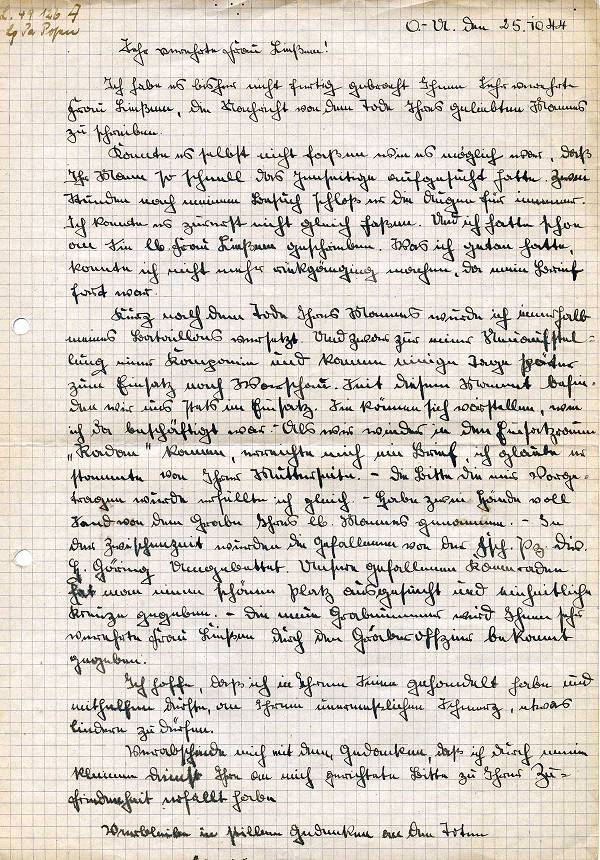 L. 49 126 A
O.-U. den 25.10.44
Sehr verehrte Frau Linßen!
Ich habe es bisher nicht fertig gebracht Ihnen Sehr verehrte
Frau Linßen, die Nachricht von dem Tode Ihres geliebten Mannes
zu schreiben.
Konnte es selbst nicht faßen wie es möglich war, daß
Ihr Mann so schnell das Jenseitige aufgesucht hatte. Zwei
Stunden nach meinem Besuch schloß er die Augen für immer.
Ich konnte es zuerst nicht gleich faßen. Und ich hatte schon
an Sie lb. Frau Linßen geschrieben. Was ich getan hatte,
konnte ich nicht mehr rückgängig machen, da mein Brief
fort war.
Kurz nach dem Tode Ihres Mannes wurde ich innerhalb
meines Bataillons versetzt. Und zwar zur einer Neuaufstel-
lung einer Kompanie und kamen einige Tage später
zum Einsatz nach Warschau. Seit diesem Moment befin-
den wir uns stets im Einsatz. Sie können sich vorstellen, wie
ich da beschäftigt war. - Als wir wieder in den Einsatzraum
"Radom" kamen, erreichte mich ein Brief, ich glaube er
stammte von Ihrer Mutterseite. - Die Bitte die mir vorge-
tragen wurde erfüllte ich gleich. - Habe zwei Hände voll
Sand von dem Grabe Ihres lb. Mannes genommen. - In
der Zwischenzeit wurden die Gefallenen von der Fsch. Pz. Div.
H. Göring Umgebettet. Unsere gefallenen Kameraden
hat man einen schönen Platz ausgesucht und einheitliche
Kreuze gegeben. - Die neue Grabnummer wird Ihnen sehr
verehrte Frau Linßen durch den Gräberoffizier bekannt
gegeben.
Ich hoffe, daß ich in Ihrem Sinne gehandelt habe und
mithelfen durfte, an Ihrem unermeßlichen Schmerz, etwas
lindern zu dürfen.
Verabschiede mich mit dem Gedanken, daß ich durch meinen
kleinen Dienst Ihre an mich gerichtete Bitte zu Ihrer Zu-
friedenheit erfüllt habe
Verbleibe in stillem Gedenken an den Toten